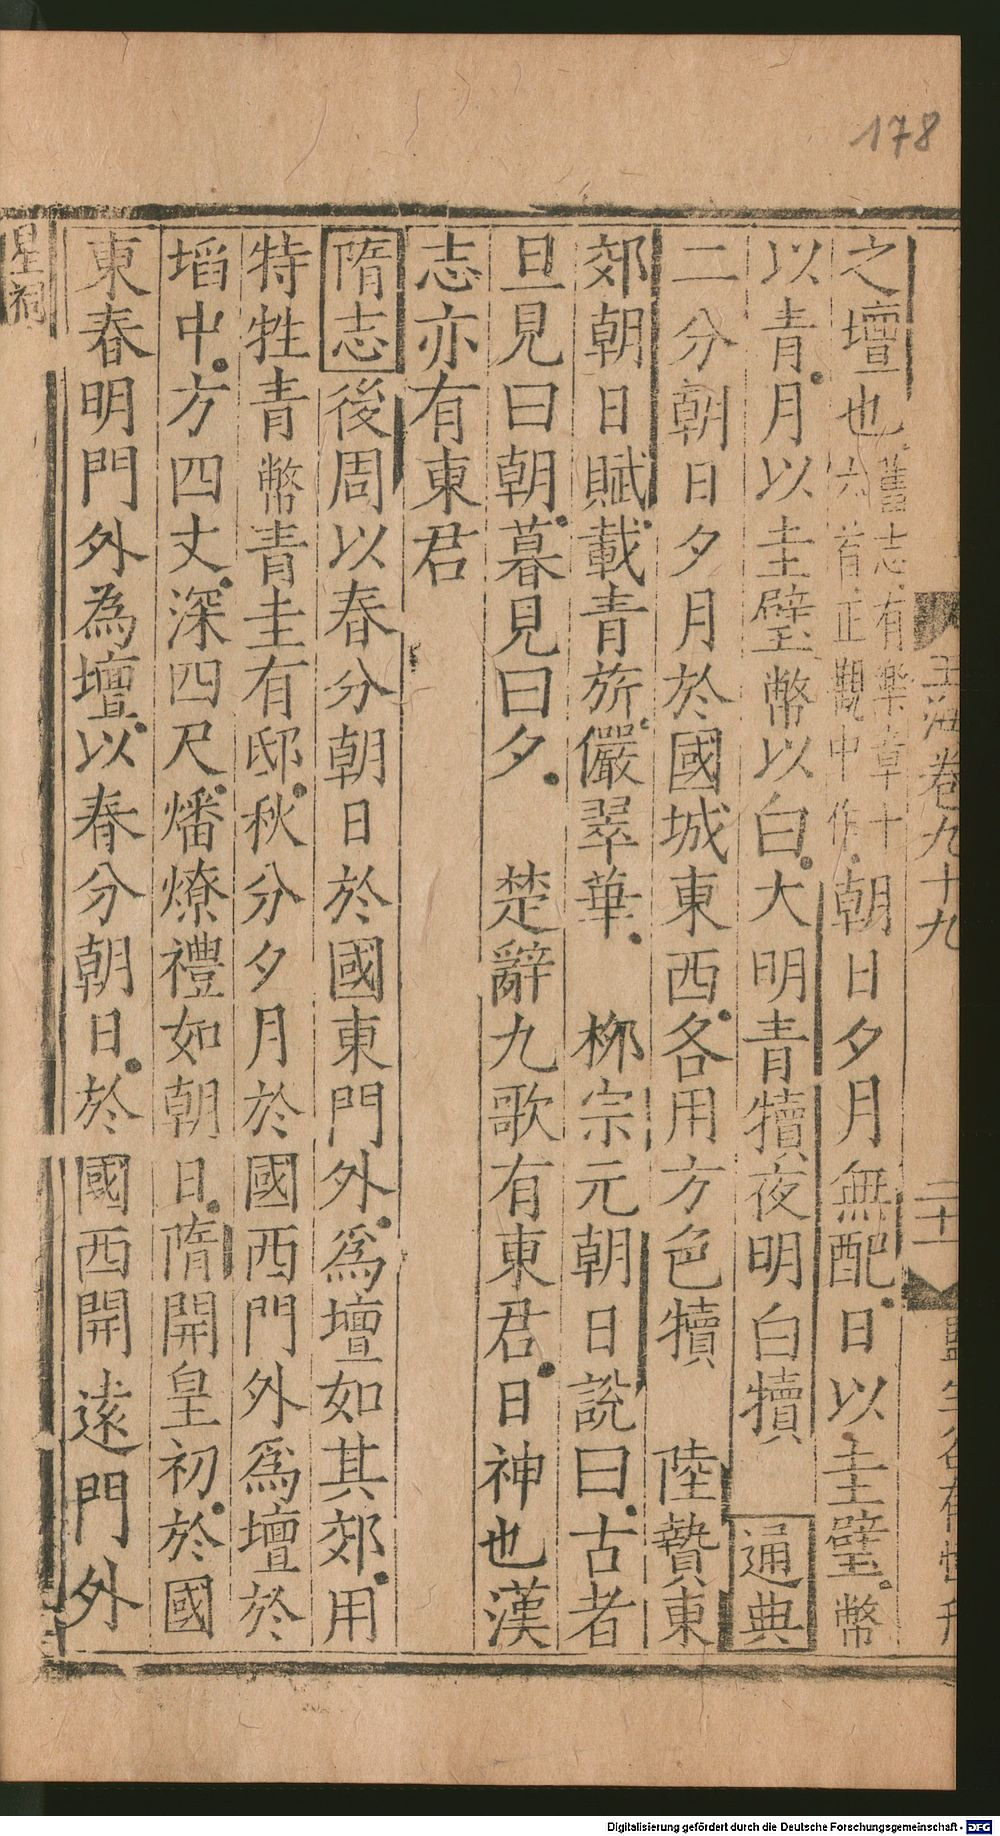 178
玉海卷九十九
二十一
之壇也舊志有樂章十六首正觀中作朝日夕月無配日以圭璧幣
以青月以圭璧幣以白大明青犢夜明白犢 通典
二分朝日夕月於國城東西各用方色犢 陸贄東
郊朝日賦載青旂儼翠華 柳宗元朝日說曰古者
旦見曰朝暮見曰夕 楚辭九歌有東君日神也漢
志亦有東君
隋志後周以春分朝日於國東門外爲壇如其郊用
特牲青幣青圭有邸秋分夕月於國西門外爲壇於
坎中方四丈深四尺燔燎禮如朝日隋開皇初於國
東春明門外為壇以春分朝日於國西開遠門外
星祠
Digitalisierung gefördert durch die Deutsche Forschungsgemeinschaft - DFG